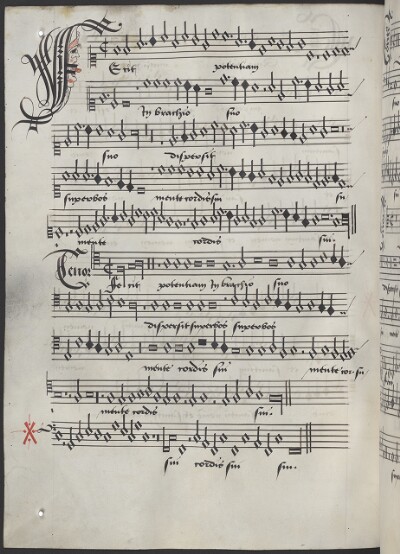 Fecit potentiam
In brachio suo
suo dispersit
superbos mente cordis sui su
mente cordis sui.
Tenor
Fecit potentiam In brachio suo
dispersit superbos superbos
mente cordis sui mente cor. su
mente cordis sui.
sui cordis sui sui.